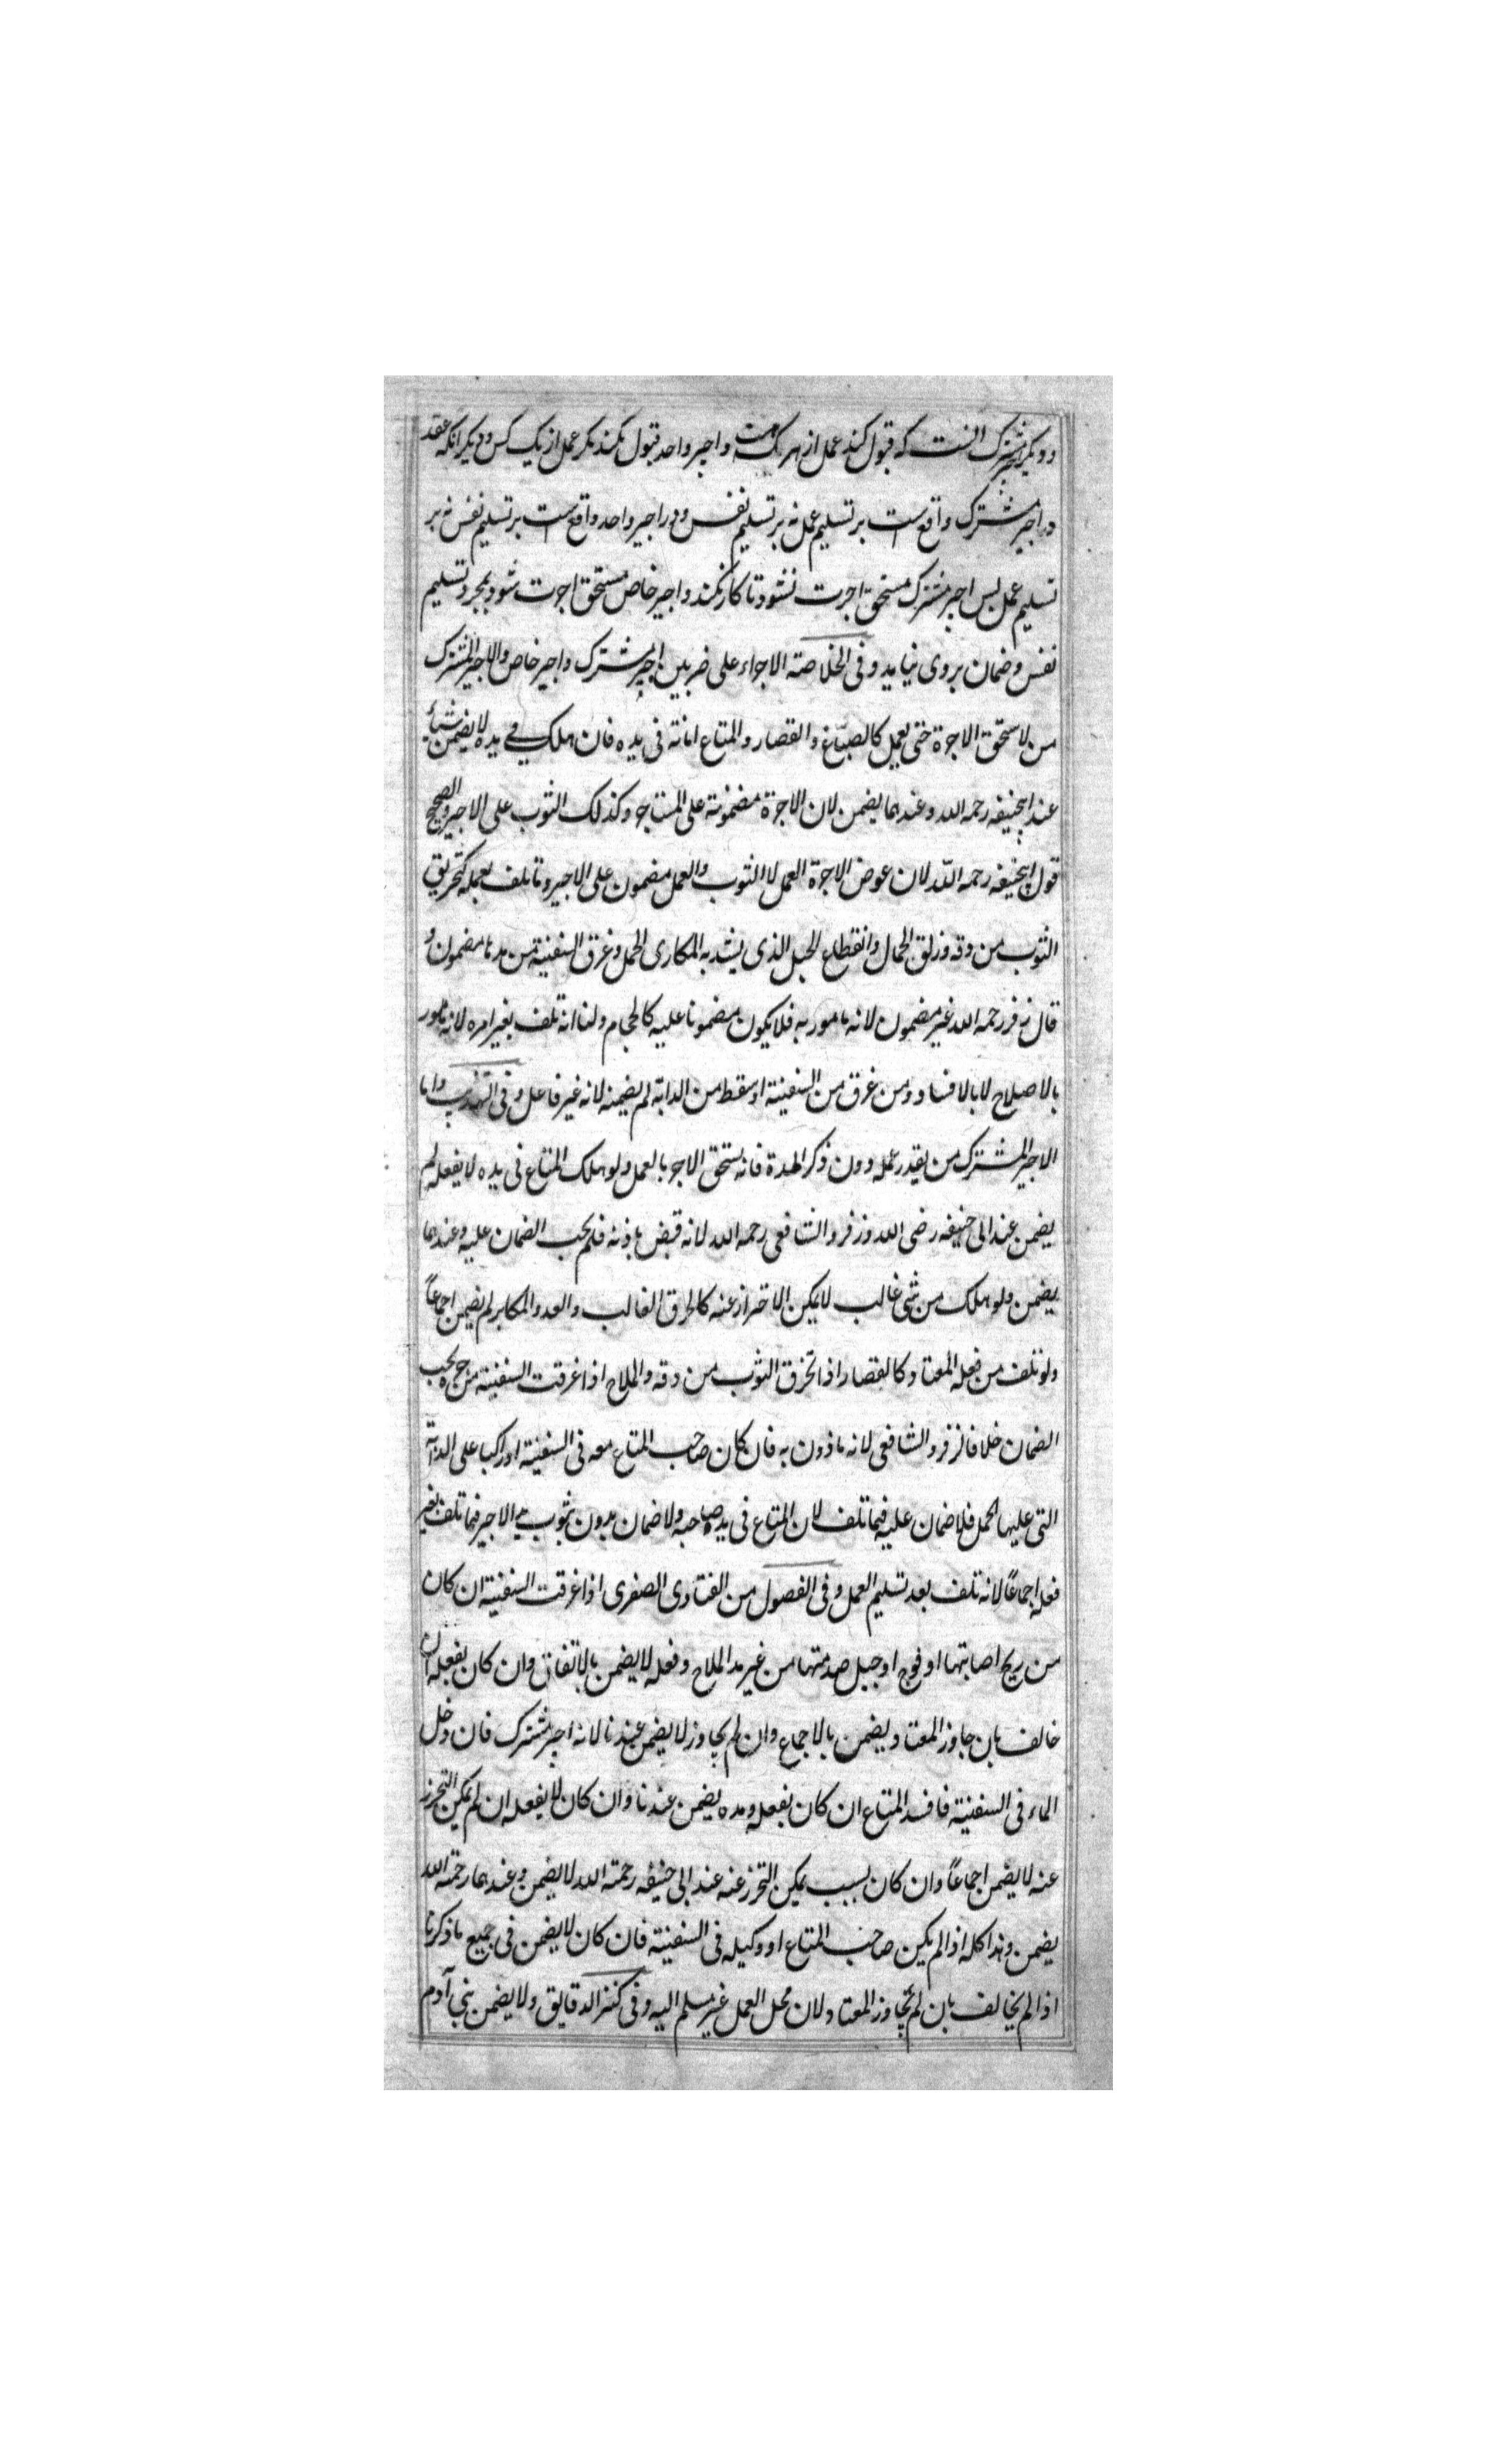 ودیکر اجیر مشترک انست که قبول کند عمل از هر که هست و اجیر واحد قبول نکند مکر عمل از یک کس و دیکر انکه عقد
در اجیر مشترک واقع است بر تسلیم عمل نه بر تسلیم نفس و در اجیر واحد واقع است بر تسلیم نفس نه بر
تسلیم عمل پس اجیر مشترک مستحق اجرت نشود تا کار نکند و اجیر خاص مستحق اجرت شود بمجرد تسلیم
نفس و ضمان بر وی نیاید و فی الخلاصة الاجراء علی ضربین اجیر مشترک و اجیر خاص والاجیر المشترک
من لا یستحق الاجرة حتی یعمل کالصباغ والقصار والمتاع امانة فی یده فان هلک فی یده لا یضمن شیأ
عند ابیحنیفه رحمه الله وعندهما یضمن لان الاجرة مضمونة علی المستاجر وکذلک الثوب علی الاجیر والصحیح
قول ابیحنیفه رحمه الله لان عوض الاجرة العمل لا الثوب والعمل مضمون علی الاجیر وما تلف بعمله کتخریق
الثوب من دقه وزلق الحمال وانقطاع الحبل الذی یشد به المکاری الحمل وغرق السفینة من مدها مضمون و
قال زفر رحمه الله غیر مضمون لانه مامور به فلا یکون مضمونا علیه کالحجام ولنا انه تلف بغیر امره لانه مامور
بالاصلاح لا بالافساد ومن غرق من السفینة او سقط من الدابة لم یضمنه لانه غیر فاعل وفی التهذیب واما
الاجیر المشترک من یقدر عمله دون ذکر المدة فانه یستحق الاجر بالعمل ولو هلک المتاع فی یده لا بفعله لم
یضمن عند ابی حنیفه رضی الله وزفر والشافعی رحمه الله لانه قبض باذنه فلم یجب الضمان علیه وعندهما
یضمن ولو هلک من شیٔ غالب لا یمکن الاحتراز عنه کالحرق الغالب والعدو المکابر لم یضمن اجماعاً
ولو تلف من فعله المعتاد کالقصار اذا تخرق الثوب من دقه والملاح اذا غرقت السفینة من یجب
الضمان خلافا لزفر والشافعی لانه ماذون به فان کان صاحب المتاع معه فی السفینة او راکبا علی الدابة
التی علیها الحمل فلا ضمان علیه فیما تلف لان المتاع فی ید صاحبه ولا ضمان بدون ثبوت ید الاجیر فیما تلف بغیر
فعله اجماعاً لانه تلف بعد تسلیم العمل وفی الفصول من الفتاوی الصغری اذا غرقت السفینة ان کان
من ریح اصابتها او فوج او جبل صدمتها من غیر مد الملاح وفعله لا یضمن بالاتفاق وان کان بفعله ان
خالف بان جاوز المعتاد یضمن بالاجماع وان لم یجاوز لا یضمن عندنا لانه اجیر مشترک فان دخل
الماء فی السفینة فافسد المتاع ان کان بفعله ومده یضمن عندنا وان کان لا بفعله ان لم یمکن التحرز
عنه لا یضمن اجماعاً وان کان بسبب یمکن التحرز عنه عند ابی حنیفه رحمة الله لا یضمن وعندهما رحمة الله
یضمن وهذا کله اذا لم یکن صاحب المتاع او وکیله فی السفینة فان کان لا یضمن فی جمیع ما ذکرنا
اذا لم یخالف بان لم یجاوز المعتاد لان محل العمل غیر مسلم الیه وفی کنز الدقایق ولا یضمن بنی آدم